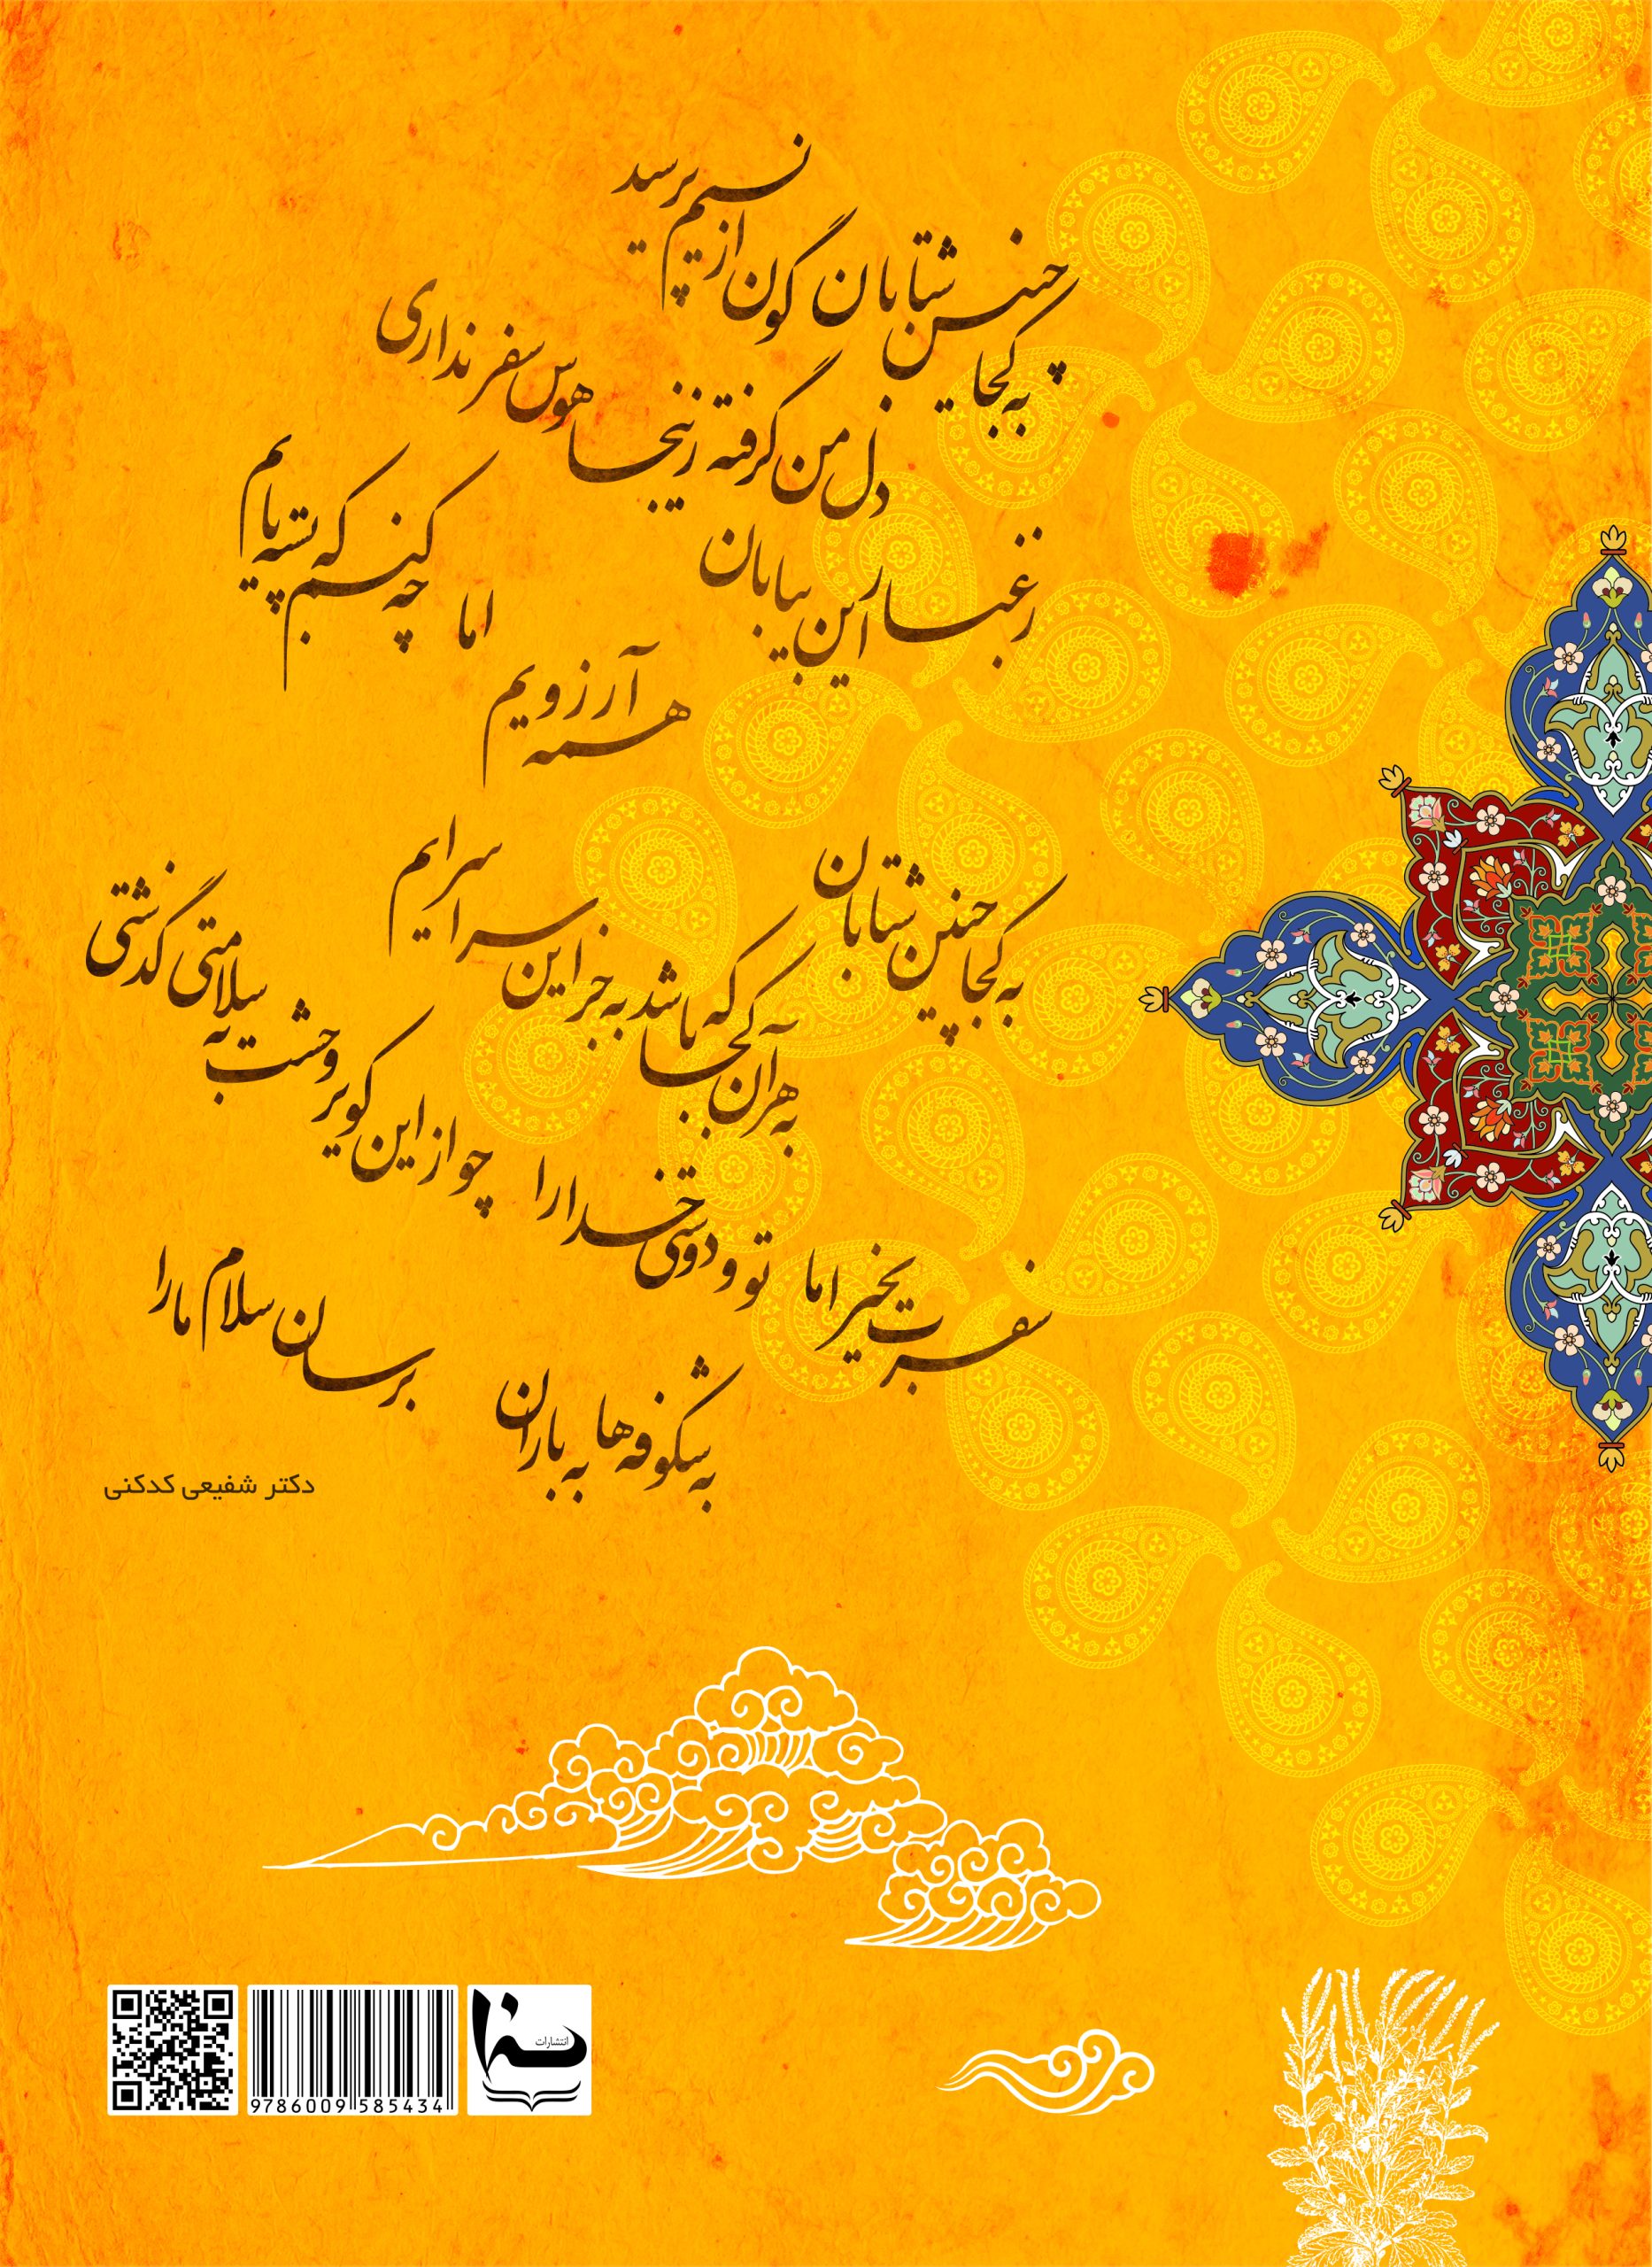 به کجا چنین شتابان گون از نسیم پرسید
دل من گرفته زینجا هوس سفر نداری
ز غبار این بیابان
همه آرزویم اما چه کنم که بسته پایم
به کجا چنین شتابان
به هر آن کجا که باشد به جز این سرا سرایم
سفرت بخیر اما تو و دوستی خدا را چو از این کویر وحشت به سلامتی گذشتی
به شکوفه ها به باران
برسان سلام ما را
دکتر شفیعی کدکنی
انتشارات
9786009585434